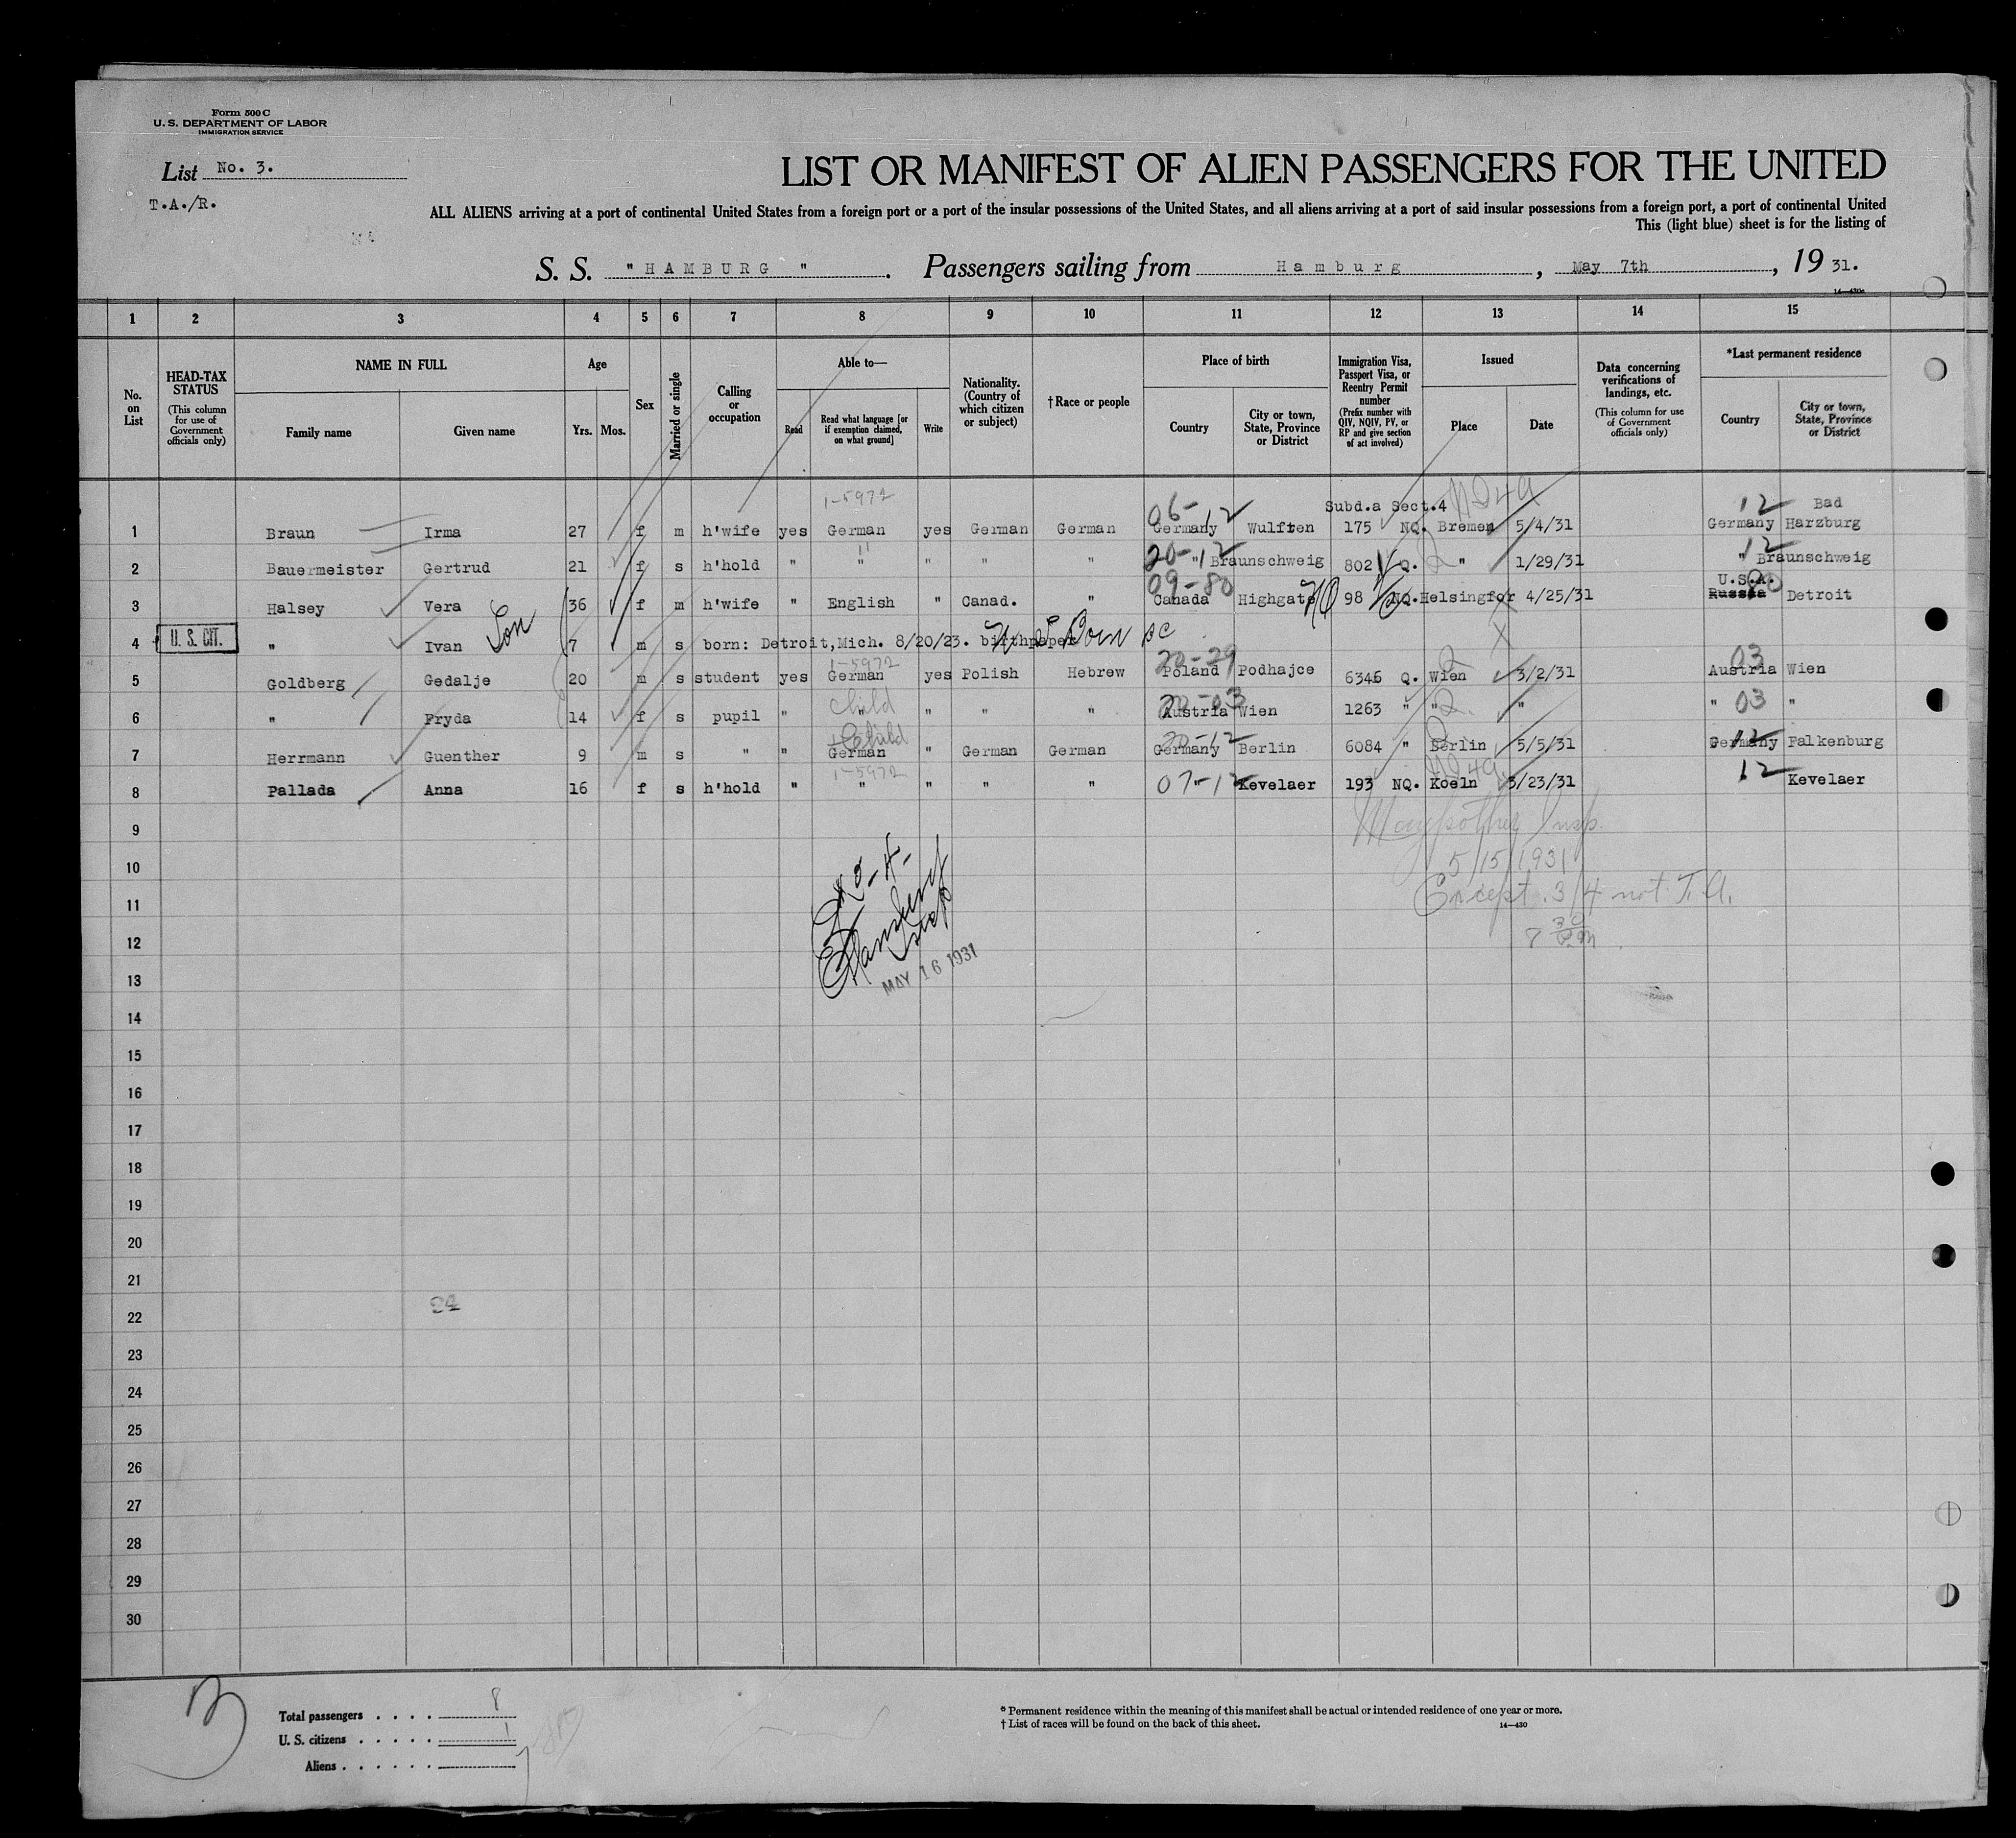 Form 500 C
U. S. DEPARTMENT OF LABOR
IMMIGRATION SERVICE
List No. 3.
T.A./R.
LIST OR MANIFEST OF ALIEN PASSENGERS FOR THE UNITED
ALL ALIENS arriving at a port of continental United States from a foreign port or a port of the insular possessions of the United States, and all aliens arriving at a port of said insular possessions from a foreign port, a port of continental United
This (light blue) sheet is for the listing of
S. S. "HAMBURG". Passengers sailing from Hamburg, May 7th, 19 31.
14—430c
1 2 3 4 5 6 7 8 9 10 11 12 13 14 15
No. on List
HEAD-TAX STATUS (This column for use of Government officials only)
NAME IN FULL
Family name Given name
Age
Yrs. Mos.
Sex
Married or single
Calling or occupation
Able to—
Read Read what language [or if exemption claimed, on what ground] Write
Nationality. (Country of which citizen or subject)
†Race or people
Place of birth
Country City or town, State, Province or District
Immigration Visa, Passport Visa, or Reentry Permit number (Prefix number with QIV, NQIV, PV, or RP and give section of act involved)
Issued
Place Date
Data concerning verifications of landings, etc. (This column for use of Government officials only)
*Last permanent residence
Country City or town, State, Province or District
1-5972 06-12 Subd.a Sect.4 12 Bad
1 Braun Irma 27 f m h'wife yes German yes German German Germany Wulften 175 NQ. Bremen 5/4/31 Germany Harzburg
20-12 12
2 Bauermeister Gertrud 21 f s h'hold " " " " " " Braunschweig 802 Q. " 1/29/31 " Braunschweig
09-80 U.S.A. 80
3 Halsey Vera 36 f m h'wife " English " Canad. " Canada Highgate 98 NQ. Helsingfor 4/25/31 Russia Detroit
4 U. S. CIT. " Ivan Son 7 m s born: Detroit,Mich. 8/20/23. birthpaper
1-5972 20-29 03
5 Goldberg Gedalje 20 m s student yes German yes Polish Hebrew Poland Podhajce 6346 Q. Wien 3/2/31 Austria Wien
child 20-03 03
6 " Fryda 14 f s pupil " " " " " Austria Wien 1263 " " " " "
child 20-12 12
7 Herrmann Guenther 9 m s " " German " German German Germany Berlin 6084 " Berlin 5/5/31 Germany Falkenburg
1-5972 07-12 12
8 Pallada Anna 16 f s h'hold " " " " " " Kevelaer 193 NQ. Koeln 3/23/31 Kevelaer
9
10 5/15/1931
11 Except 3/4 not T.A.
12
MAY 16 1931
13
14
15
16
17
18
19
20
21
22
23
24
25
26
27
28
29
30
3
Total passengers . . . . 8
U. S. citizens . . . . . 1
Aliens . . . . . . 7
* Permanent residence within the meaning of this manifest shall be actual or intended residence of one year or more.
† List of races will be found on the back of this sheet. 14—430